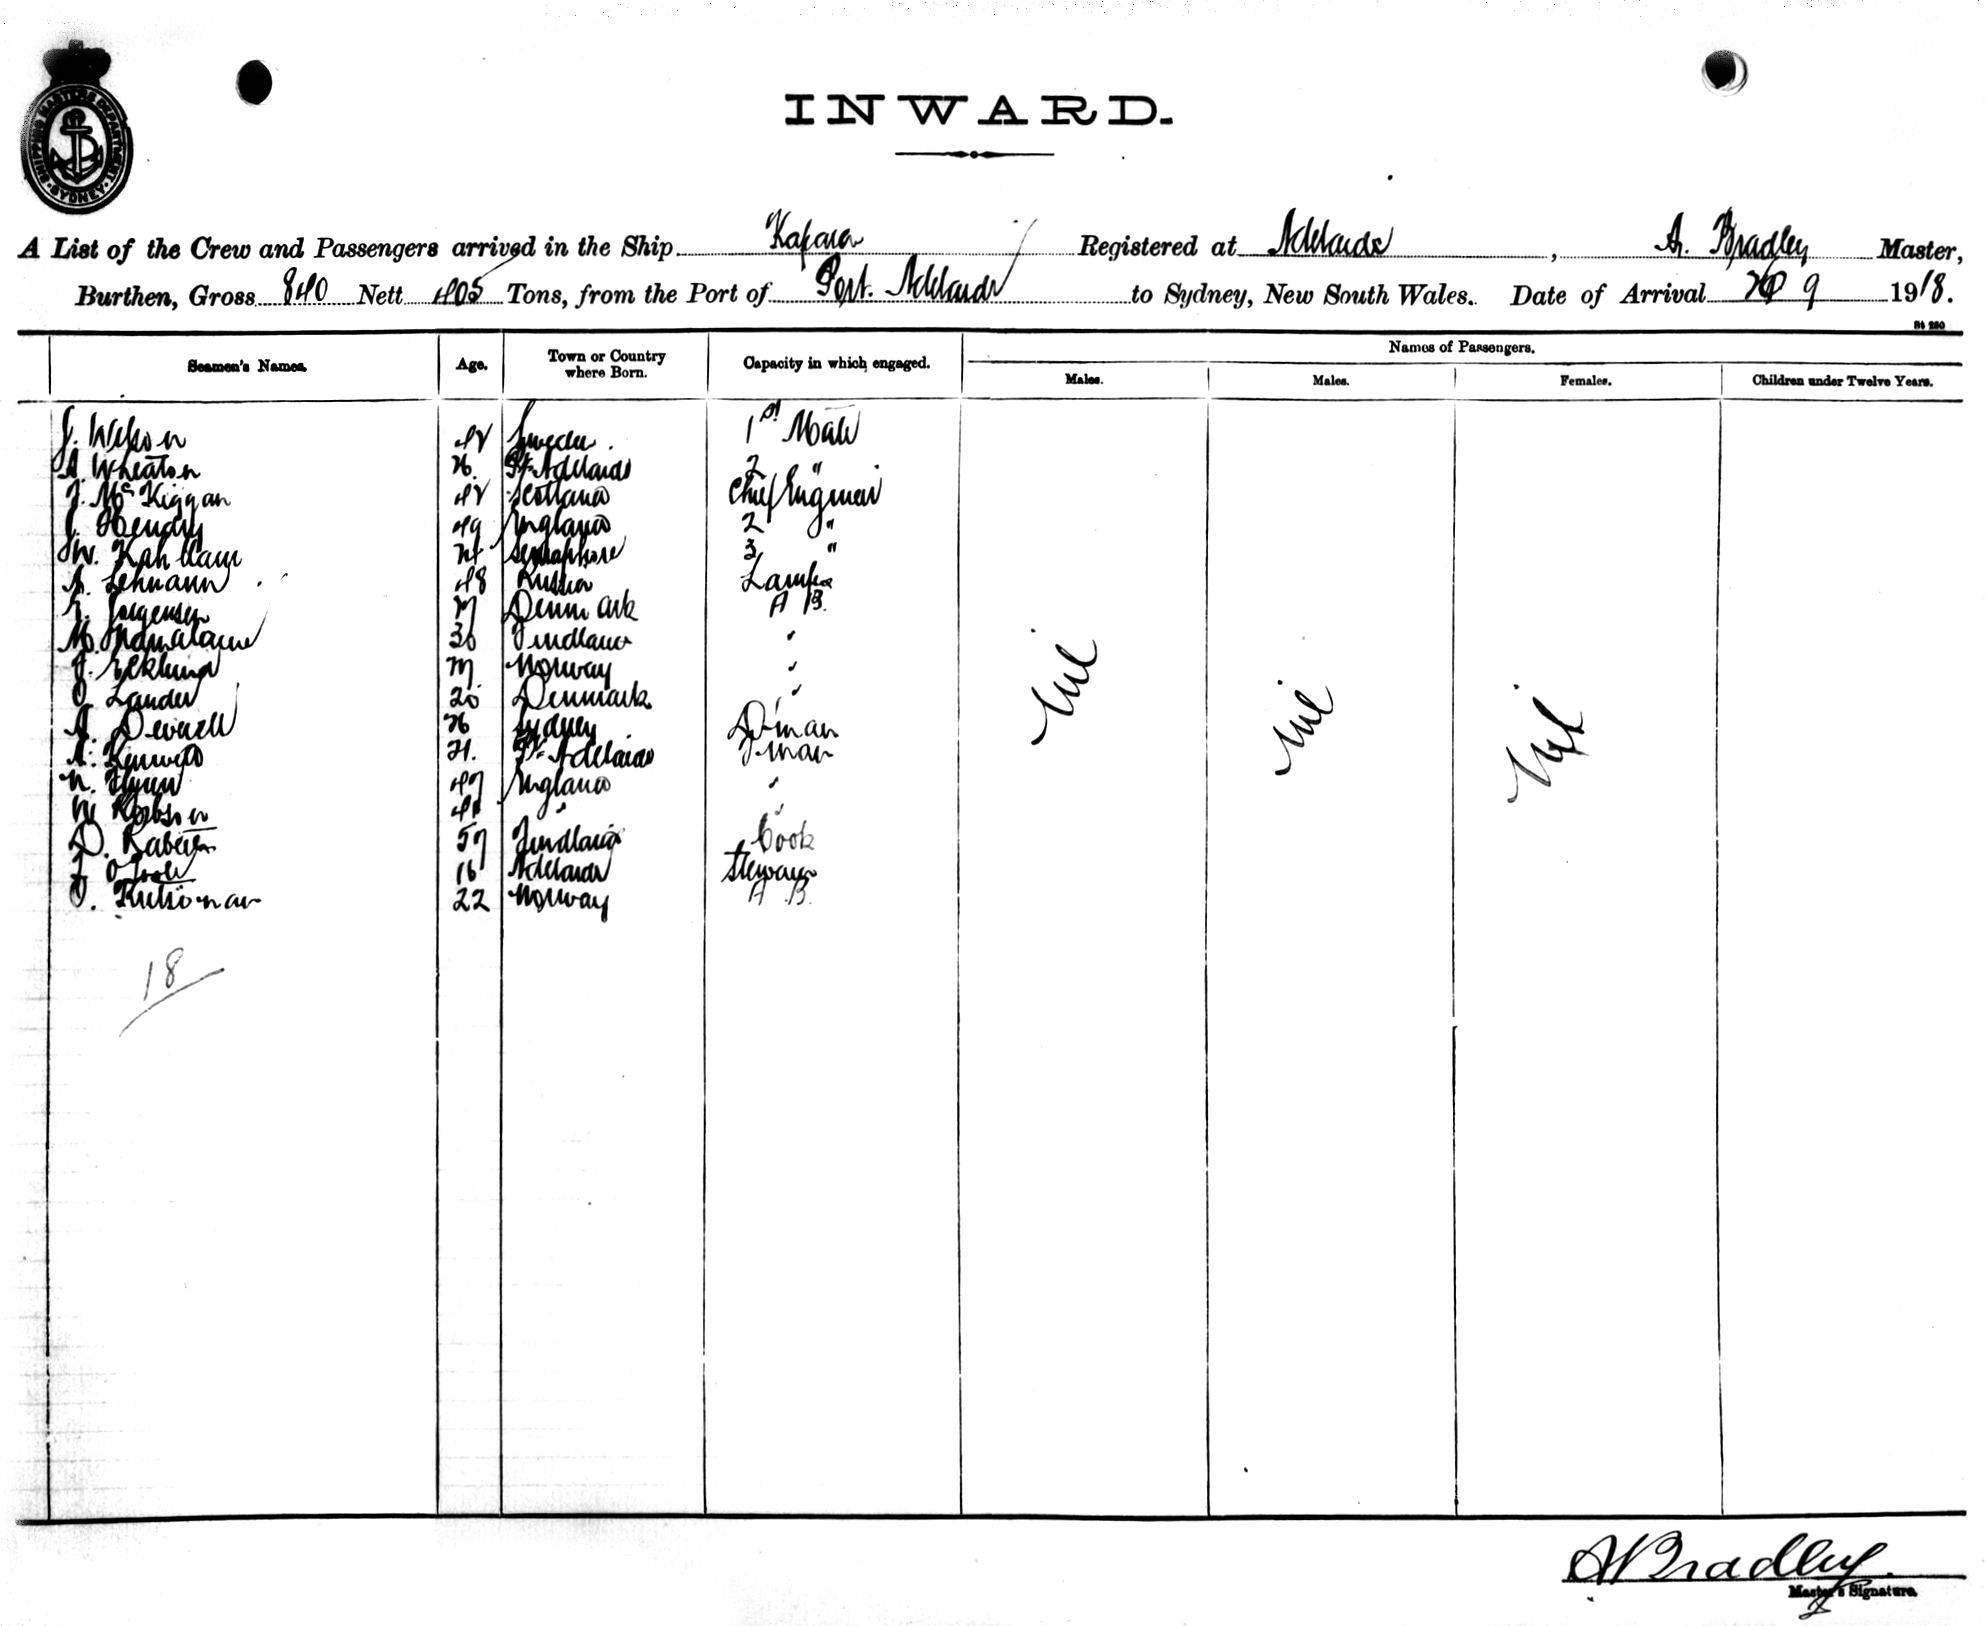 SHIPPING MASTERS DEPARTMENT SYDNEY
INWARD.
A List of the Crew and Passengers arrived in the Ship Registered at Adelaide, A. Bradley Master,
Burthen, Gross 840 Nett 405 Tons, from the Port of Port. Adelaide to Sydney, New South Wales. Date of Arrival 9 1918.
St 280
Seamen's Names. Age. Town or Country where Born. Capacity in which engaged. Names of Passengers.
Males. Males. Females. Children under Twelve Years.
J. 42 Sweden. 1st Mate
A. Wheaton 26. Pt. Adelaide 2 "
J. McKiggan 42 Scotland Chief Engineer
J. Hendry 49 England 2 "
W. 24 Semaphore 3 "
A. Lehmann 48 Russia Lamps
Jorgensen 27 Denmark A B.
M. 30 Findland "
J. Ecklund 27 Norway "
O Lander 20 Denmark "
A. 26 Sydney Dman
A. 21. Pt. Adelaide Fman
Flynn 47 England "
W Hobson " "
D. 57 Findland Cook
16 Adelaide Steward
O. 22 Norway A B.
Nil Nil Nil
18
A Bradley
Master's Signature.